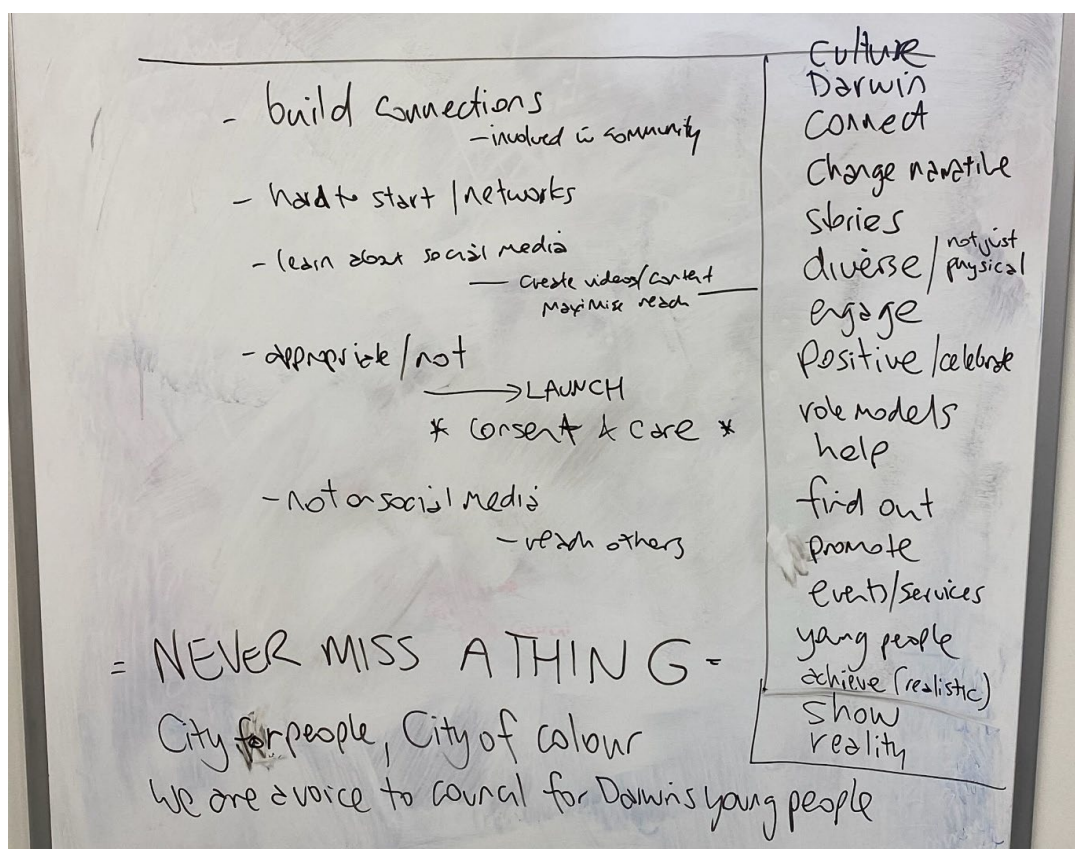 - build connections
- involved in community
- hard to start / networks
- learn about social media
- create videos/content
maximise reach
- appropriate / not
→ LAUNCH
* consent & care *
- not on social media
- reach others
= NEVER MISS A THING -
City for people, City of colour
We are a voice to council for Darwins young people
culture
Darwin
connect
change narative
stories
diverse / not just
physical
engage
positive / celebrate
role models
help
find out
promote
events/services
young people
achieve (realistic)
show
reality